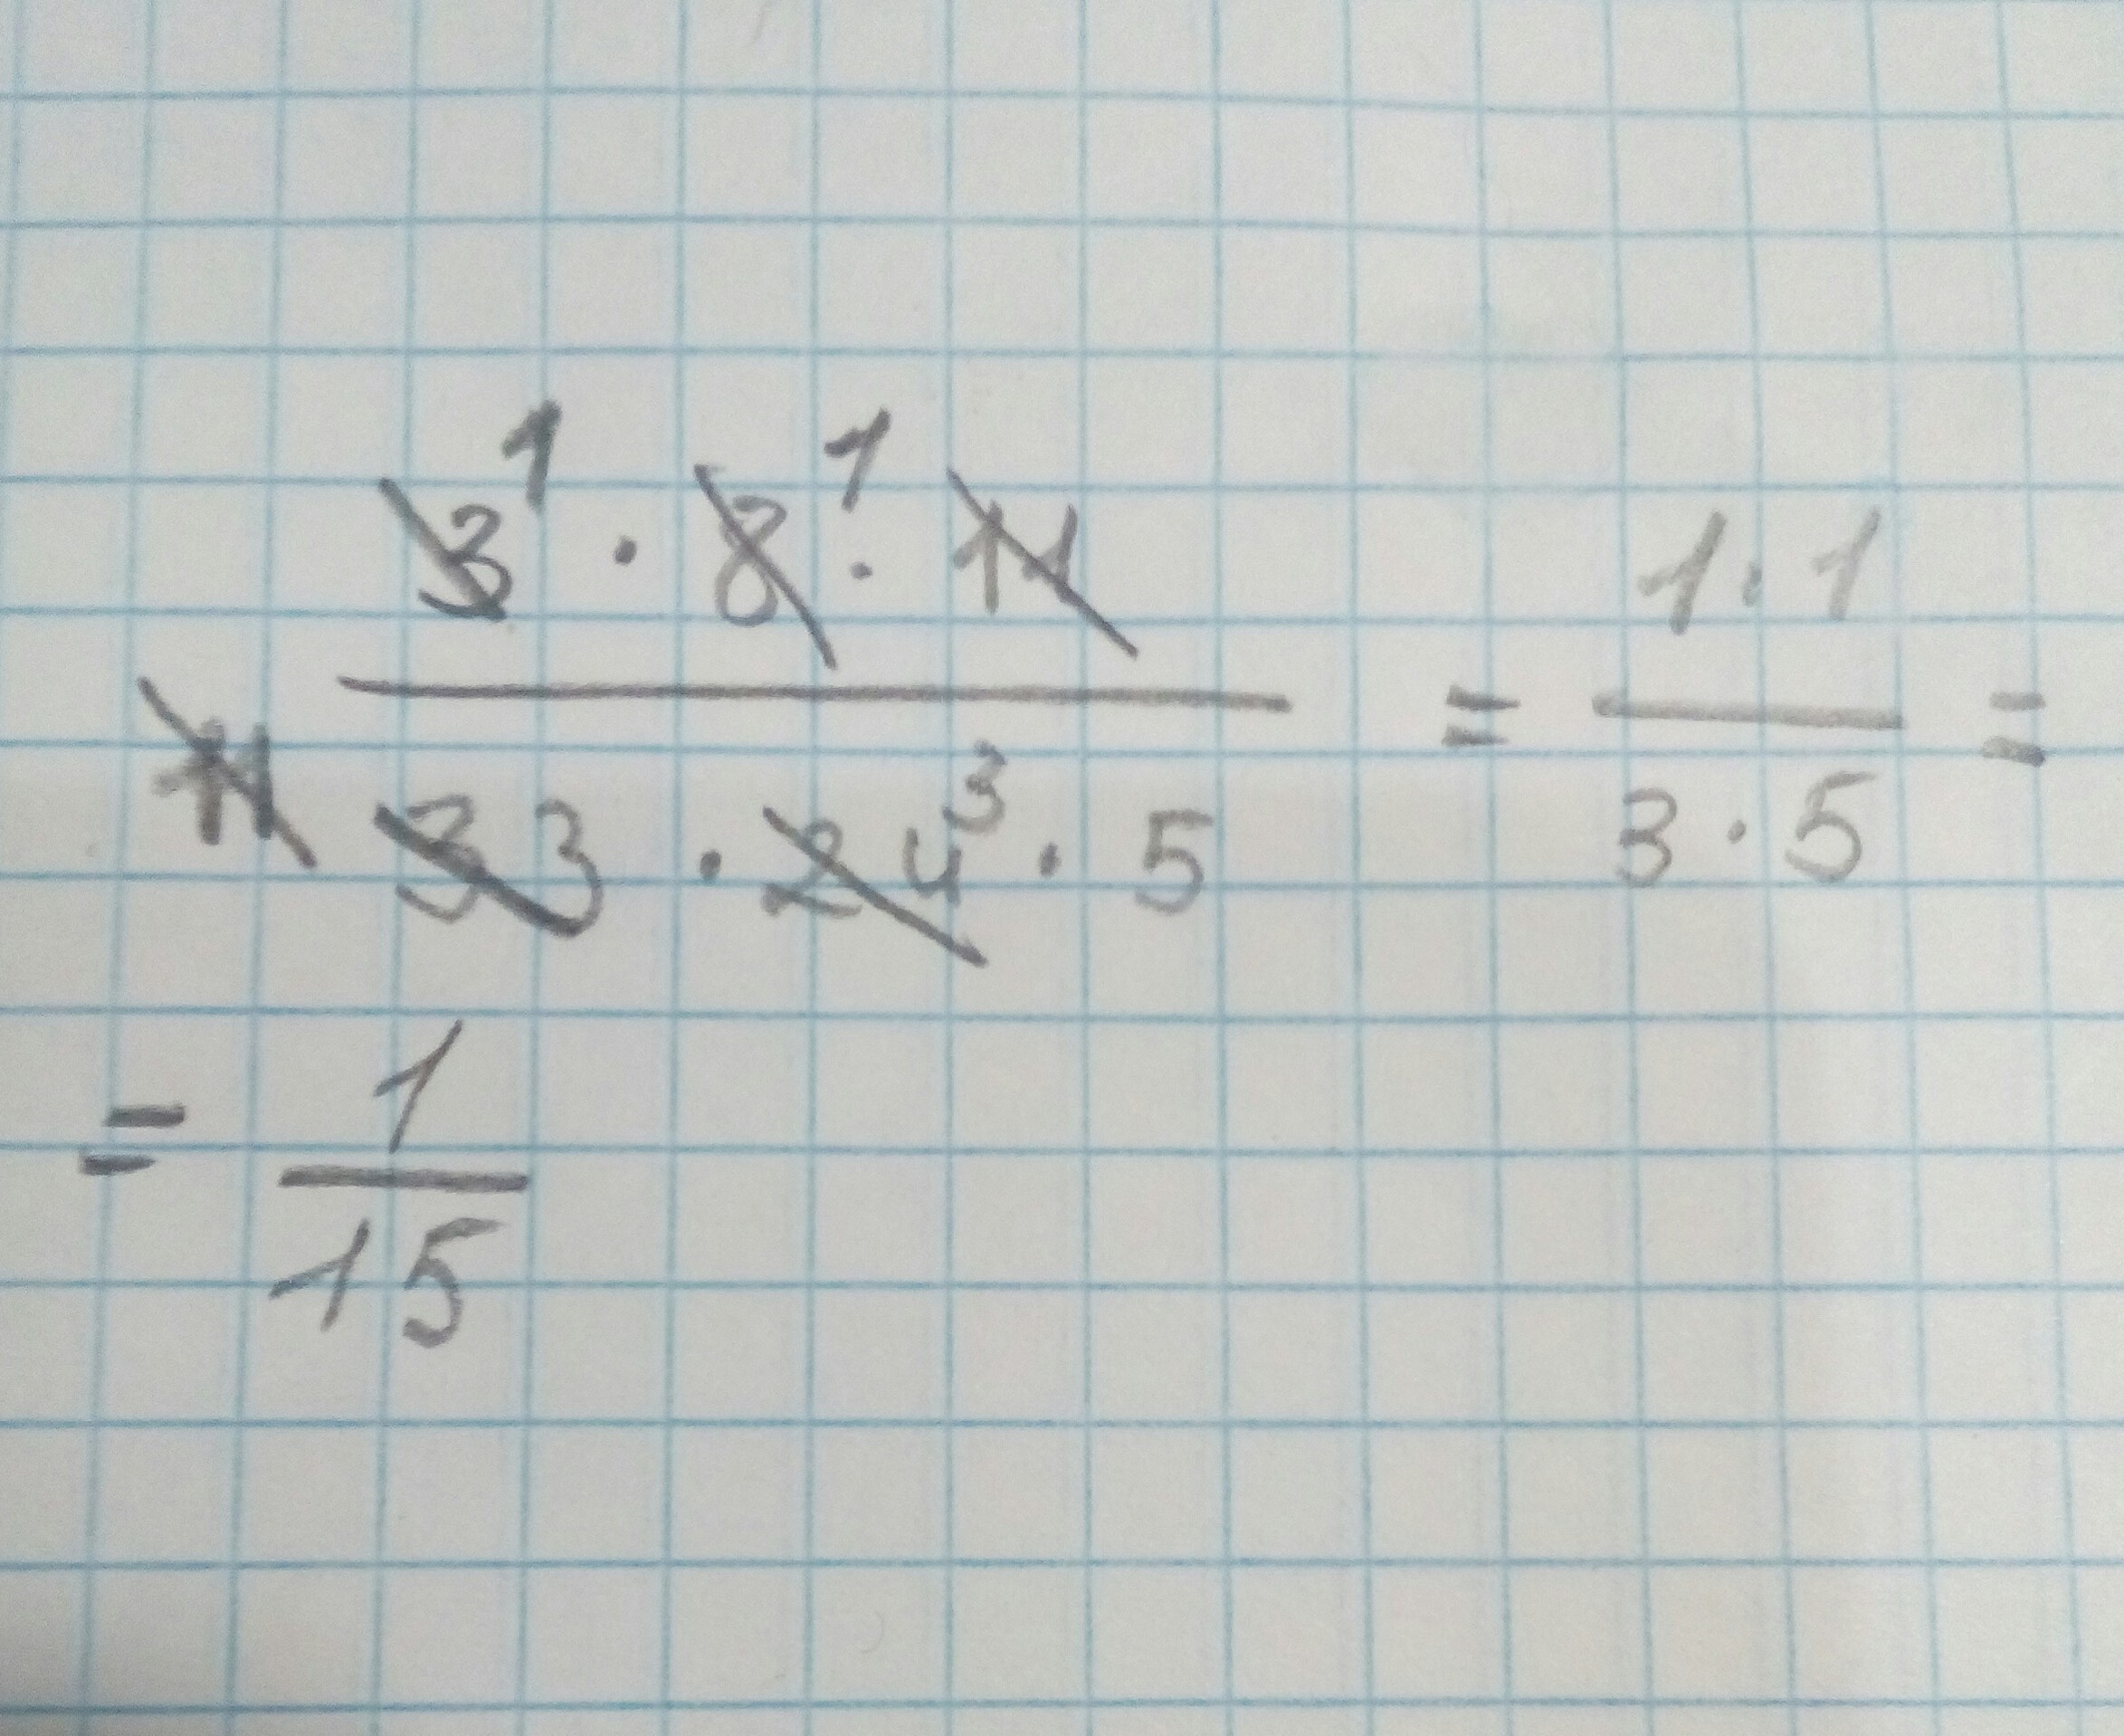 3¹ · 8¹ · 11
11 33 · 24³ · 5
= 1 · 1 / 3 · 5 =
= 1 / 15